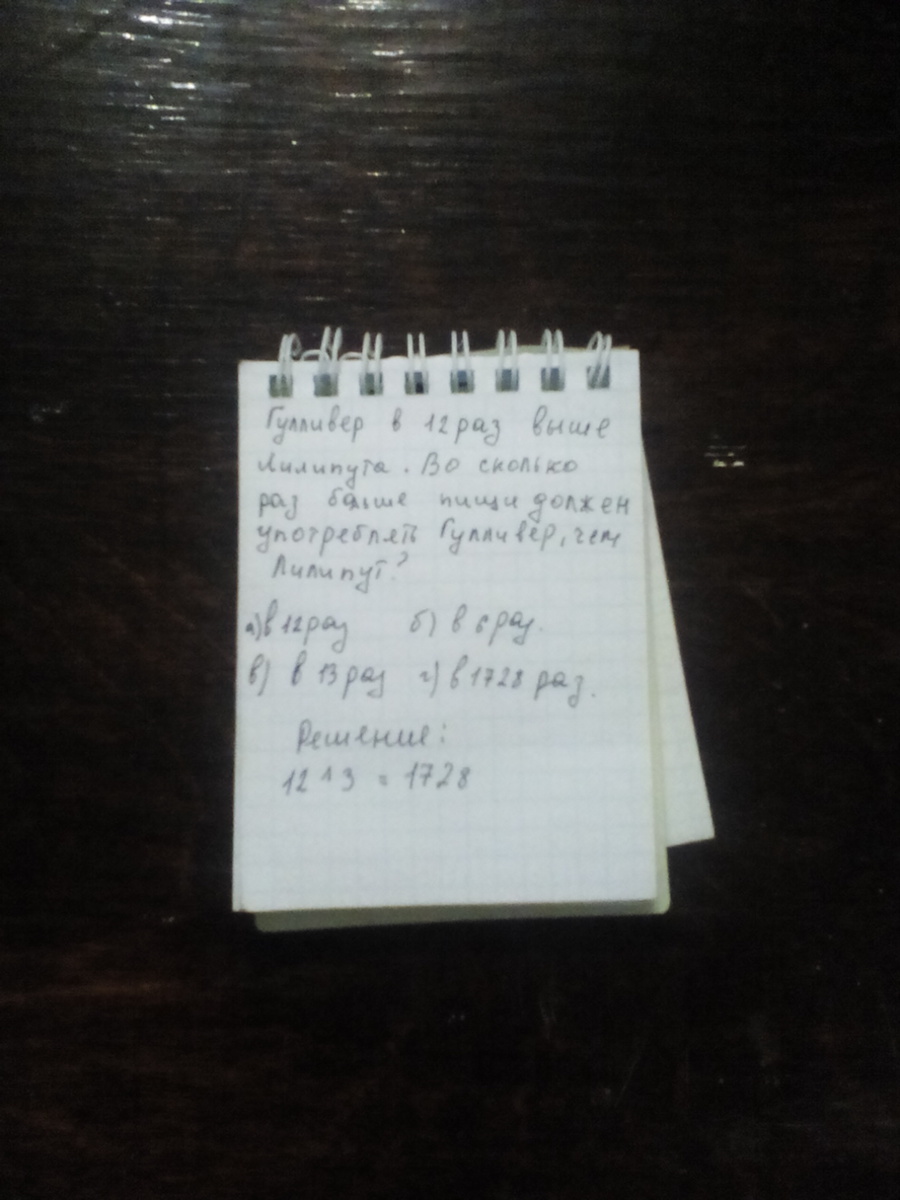 Гулливер в 12 раз выше
Лилипута. Во сколько
раз больше пищи должен
употреблять Гулливер, чем
Лилипут?
а) в 12 раз б) в 6 раз.
в) в 13 раз г) в 1728 раз.
Решение:
12^3 = 1728